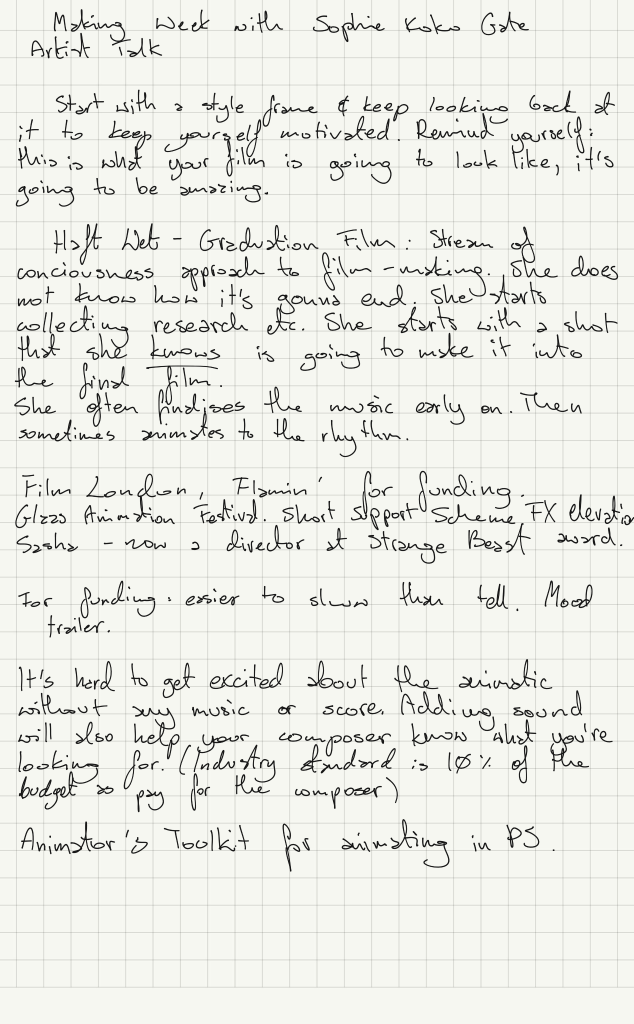 Making Week with Sophie Koko Gate
Artist Talk
Start with a style frame & keep looking back at
it to keep yourself motivated. Remind yourself:
this is what your film is going to look like, it's
going to be amazing.
Half Wet - Graduation Film: Stream of
conciousness approach to film-making. She does
not know how it's gonna end. She starts
collecting research etc. She starts with a shot
that she knows is going to make it into
the final film.
She often finalises the music early on. Then
sometimes animates to the rhythm.
Film London, Flamin' for funding.
Glass Animation Festival. Short Support Scheme. FX elevation
Sasha - now a director at Strange Beast award.
For funding: easier to show than tell. Mood
trailer.
It's hard to get excited about the animatic
without any music or score. Adding sound
will also help your composer know what you're
looking for. (Industry standard is 10% of the
budget as pay for the composer)
Animator's Toolkit for animating in PS.